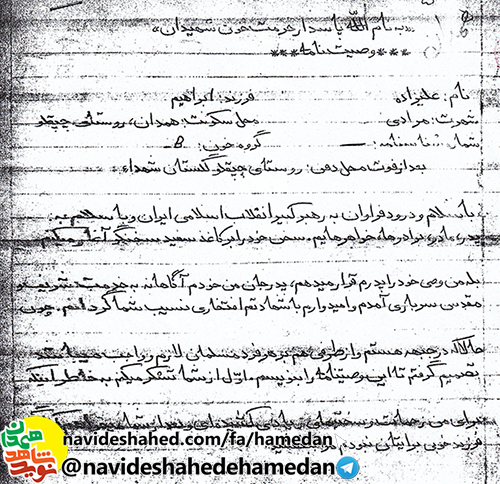 «به نام اللّه پاسدار حرمت خون شهیدان»
***وصیت نامه***
نام: علیزاده فرزند: ابراهیم
شهرت: مرادی محل سکونت: همدان، روستای
شماره شناسنامه: — گروه خون: B
بعد از فوت محل دفن: روستای گلستان شهداء
با سلام و درود فراوان به رهبر کبیر انقلاب اسلامی ایران و با سلام به
پدر، مادر، برادرها، خواهرهایم. سخن خود را بر کاغذ سفید آغاز میکنم
بله من وصی خود را پدرم قرار میدهم، پدرجان من خودم آگاهانه به خدمت
مقدس سربازی آمدم و امیدوارم با شهادتم افتخاری نسیب شما گردانم. چون
حالا که در جبهه هستم و از طرفی هم بر هر فرد مسلمان لازم و واجب میباشد
تصمیم گرفتم تا این وصیتنامه را بنویسم. اول از شما تشکر میکنم به خاطر اینکه
برای من زحمات و سختیهای زیادی کشیده‌ای و بعد از شما
فرزند خوبی برایتان نبودم
نوید شاهد
navideshahed.com/fa/hamedan
@navideshahedehamedan